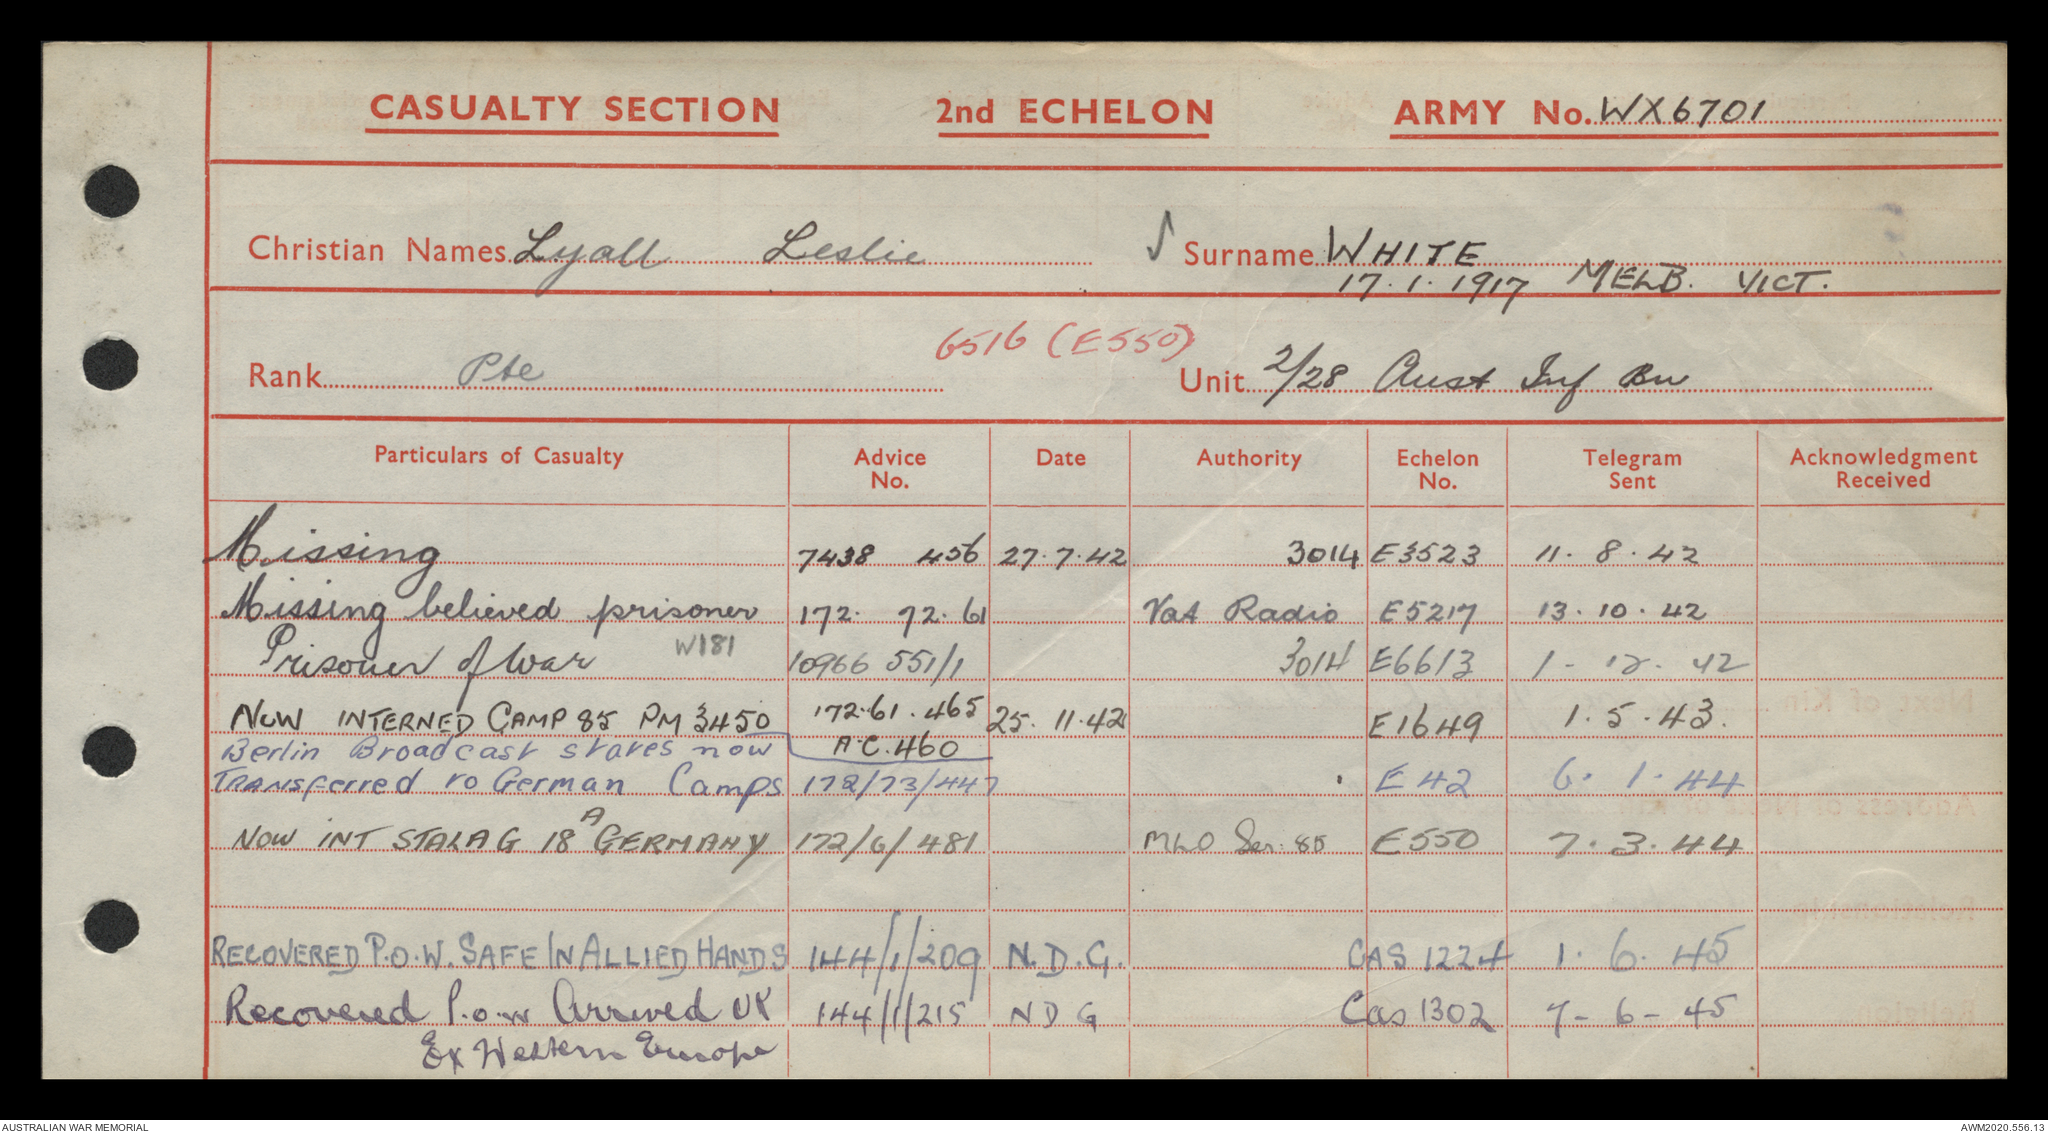 CASUALTY SECTION 2nd ECHELON ARMY No. WX6701
Christian Names Lyall Leslie √ Surname WHITE
17.1.1917 MELB. VICT.
6516 (E550)
Rank Pte Unit 2/28 Aust Inf Bn
Particulars of Casualty Advice No. Date Authority Echelon No. Telegram Sent Acknowledgment Received
Missing 7438 456 27.7.42 3014 E3523 11.8.42
Missing believed prisoner 172. 72.61 Vat Radio E5217 13.10.42
Prisoner of War W181 10966 551/1 3014 E6613 1-12-42
NOW INTERNED CAMP 85 PM 3450 172.61.465 25.11.42 E1649 1.5.43.
Berlin Broadcast states now A.C.460
TRANSferred to German Camps 172/73/447 E42 6.1.44
NOW INT STALAG 18 A GERMANY 172/6/481 MLO Ser. 85 E550 7.3.44
RECOVERED P.O.W. SAFE IN ALLIED HANDS 144/1/209 N.D.G. CAS 1224 1.6.45
Recovered P.o.w Arrived UK 144/1/215 NDG Cas 1302 7-6-45
Ex Western Europe
AUSTRALIAN WAR MEMORIAL AWM2020.556.13